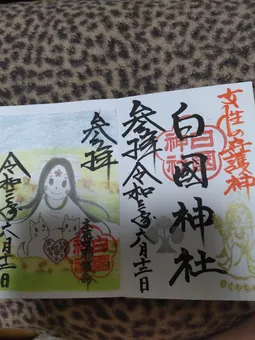 女性の守護神
白國神社
白國
神社
参拝
令和三年六月十二日
参拝
令和三年六月十二日
白國
神社